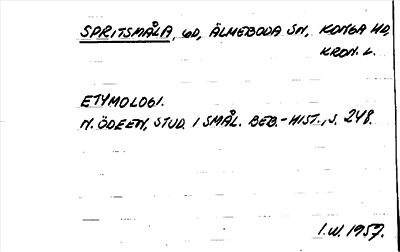 SPRITSMÅLA, GD, ÄLMEBODA SN, KONGA HD,
KRON. L.
ETYMOLOGI.
N. ÖDEEN, STUD. I SMÅL. BEB.-HIST., S. 248.
I.W. 1957.